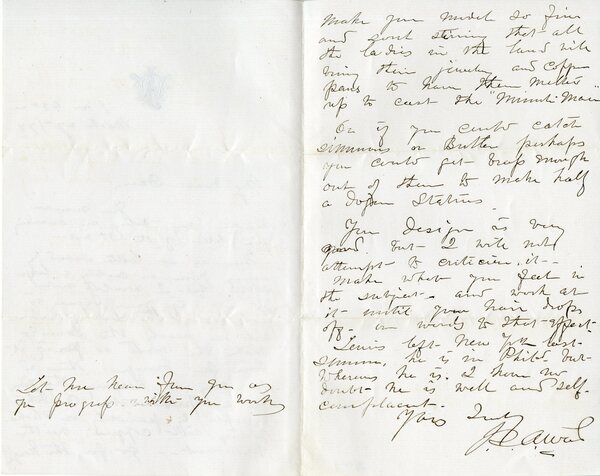 make your model so fine
and soul stirring that all
the ladies in the land will
bring their jewelry and copper
pans to have them melted
up to cast the "Minute Man"
Or if you could catch
Simmons or Butler perhaps
you could get brass enough
out of them to make half
a dozen Statues.
Your design is very
good. but I will not
attempt to criticise it -
Make what you feel in
the subject - and work at
it - until your hair drops
off - or words to that effect.
Lewis left New York last
he is in Phild but
whereas he is. I have no
doubt he is well and self-
complacent.
Yours Truly
J. Q. A. Ward
Let me hear from you as
you progress with your work